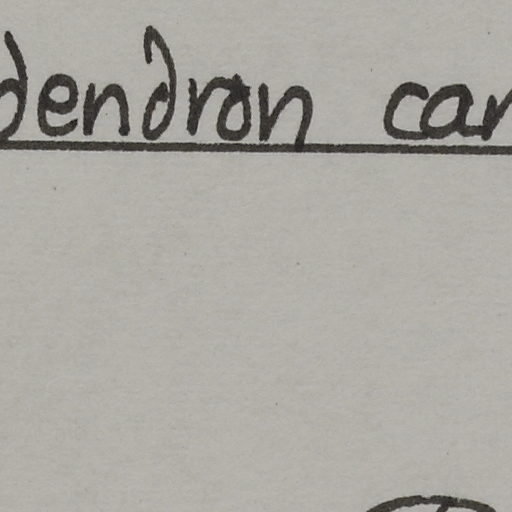 dendron car